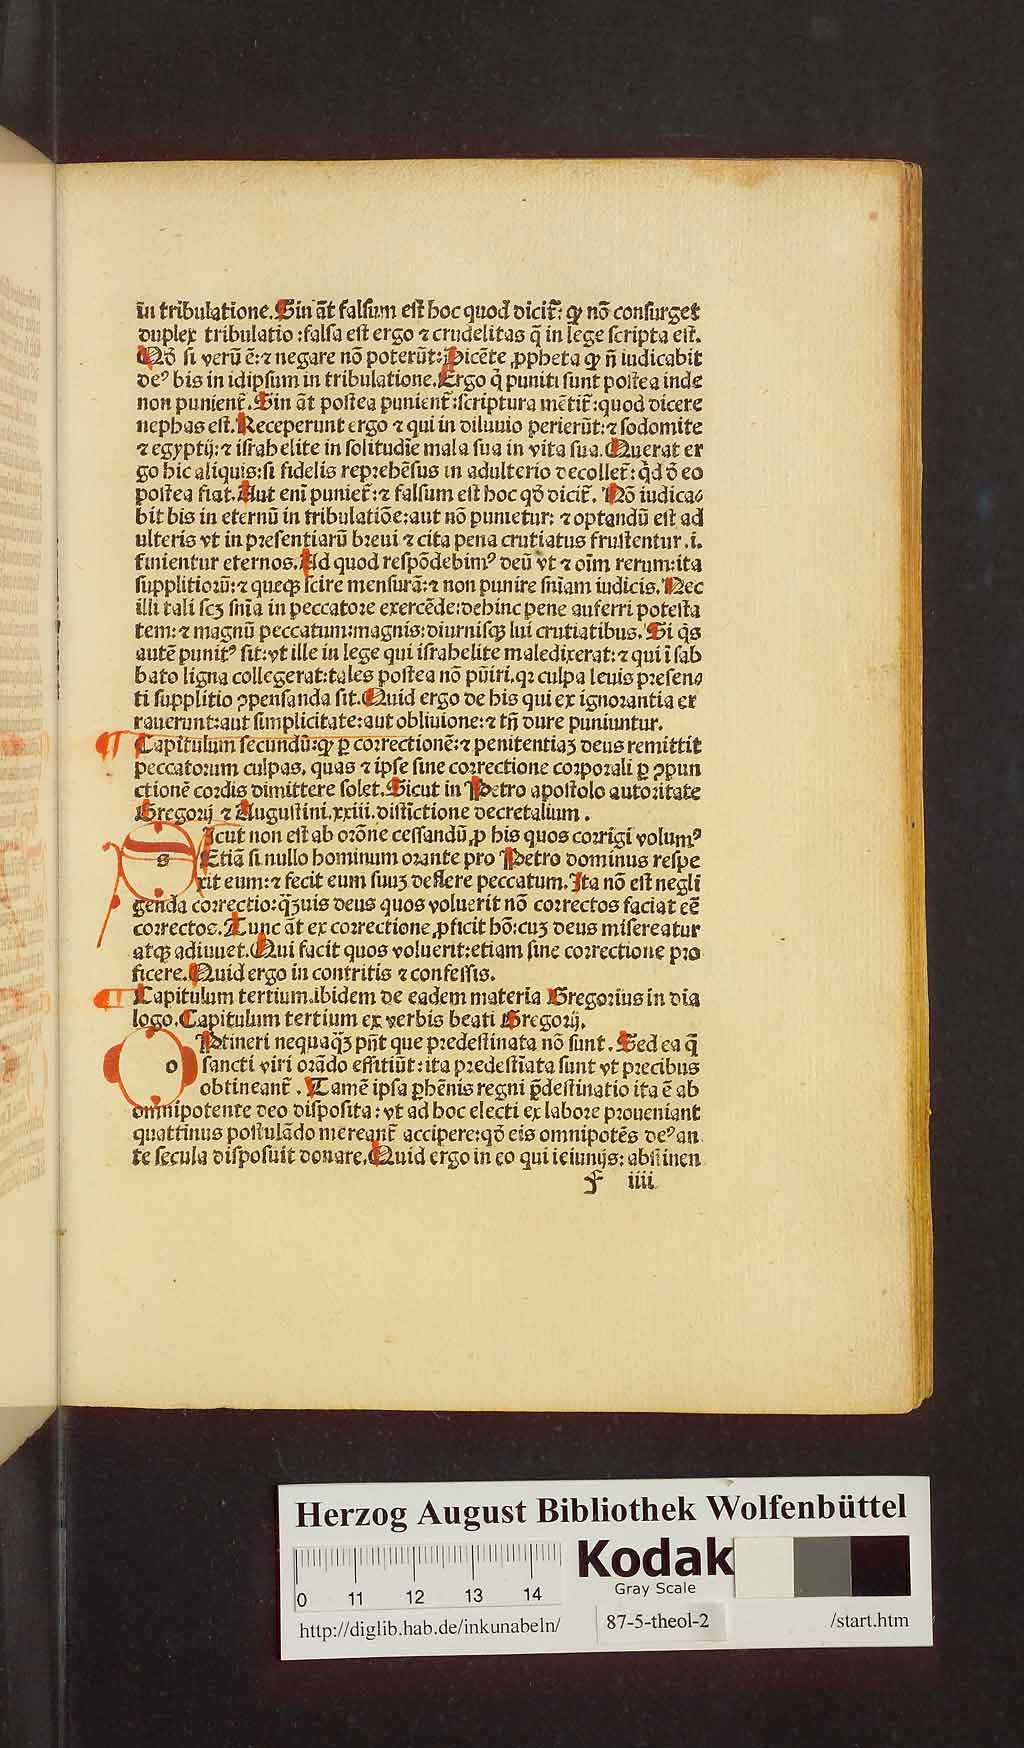 in tribulatione. Sin āt falsum est hoc quod dicit̄: ꝙ nō consurget
duplex tribulatio: falsa est ergo ⁊ crudelitas q̄ in lege scripta est.
Qđ si verū ē: ⁊ negare nō poterūt: Dicēte ꝓpheta ꝙ ñ iudicabit
deꝰ bis in idipsum in tribulatione. Ergo q̄ puniti sunt postea inde
non punient̄. Sin āt postea punient̄: scriptura mētit̄: quod dicere
nephas est. Receperunt ergo ⁊ qui in diluuio perierūt: ⁊ sodomite
⁊ egyptij: ⁊ israhelite in solitudīe mala sua in vita sua. Querat er
go hic aliquis: si fidelis reprehēsus in adulterio decollet̄: qd đ eo
postea fiat. Aut enī puniet̄: ⁊ falsum est hoc qđ dicit̄. Nō iudica⸗
bit bis in eternū in tribulatiōe: aut nō punietur: ⁊ optandū est ad
ulteris vt in presentiarū breui ⁊ cita pena crutiatus frustentur .i.
finientur eternos. Ad quod respōdebimꝰ deū vt ⁊ oīm rerum: ita
supplitiorū: ⁊ queqꝫ scire mensurā: ⁊ non punire sn̄iam iudicis. Nec
illi tali scꝫ sn̄ia in peccatore exercēde: dehinc pene auferri potesta
tem: ⁊ magnū peccatum: magnis: diurnisqꝫ lui crutiatibus. Si q̄s
autē punitꝰ sit: vt ille in lege qui israhelite maledixerat: ⁊ qui ī sab
bato ligna collegerat: tales postea nō pūiri. qꝛ culpa leuis presen⸗
ti supplitio ꝯpensanda sit. Quid ergo de his qui ex ignorantia er
rauerunt: aut simplicitate: aut obliuione: ⁊ tn̄ dure puniuntur.
¶ Capitulum secundū: ꝙ ꝑ correctionē: ⁊ penitentiaꝫ deus remittit
peccatorum culpas. quas ⁊ ipse sine correctione corporali ꝑ ꝯpun
ctionē cordis dimittere solet. Sicut in Petro apostolo autoritate
Gregorij ⁊ Augustini. xxiii. distīctione decretalium.
S Icut non est ab orōne cessandū ꝓ his quos corrigi volumꝰ
Etiā si nullo hominum orante pro Petro dominus respe
xit eum: ⁊ fecit eum suuꝫ deflere peccatum. Ita nō est negli
genda correctio: q̄ꝫuis deus quos voluerit nō correctos faciat eē
correctos. Tunc āt ex correctione ꝓficit hō: cuꝫ deus misereatur
atqꝫ adiuuet. Qui facit quos voluerit: etiam sine correctione pro
ficere. Quid ergo in contritis ⁊ confessis.
¶ Capitulum tertium. ibidem de eadem materia Gregorius in dia
logo. Capitulum tertium ex verbis beati Gregorij.
O Ptineri nequaq̄ꝫ pn̄t que predestinata nō sunt. Sed ea q̄
sancti viri orādo effitiūt: ita predestīata sunt vt precibus
obtineant̄. Tamē ipsa ꝑhēnis regni p̄destinatio ita ē ab
omnipotente deo disposita: vt ad hoc electi ex labore proueniant
quattinus postulādo mereant̄ accipere: qđ eis omnipotēs deꝰ an
te secula disposuit donare. Quid ergo in eo qui ieiunijs: abstinen
f iiii
Herzog August Bibliothek Wolfenbüttel
0 11 12 13 14
Kodak
Gray Scale
http://diglib.hab.de/inkunabeln/
87-5-theol-2
/start.htm